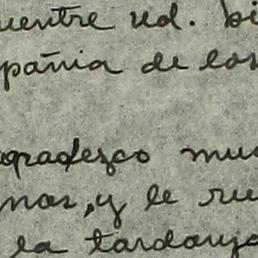 uentre ud. bi
pañia de los
agradezco muc
nas, y le rue
la tardanza